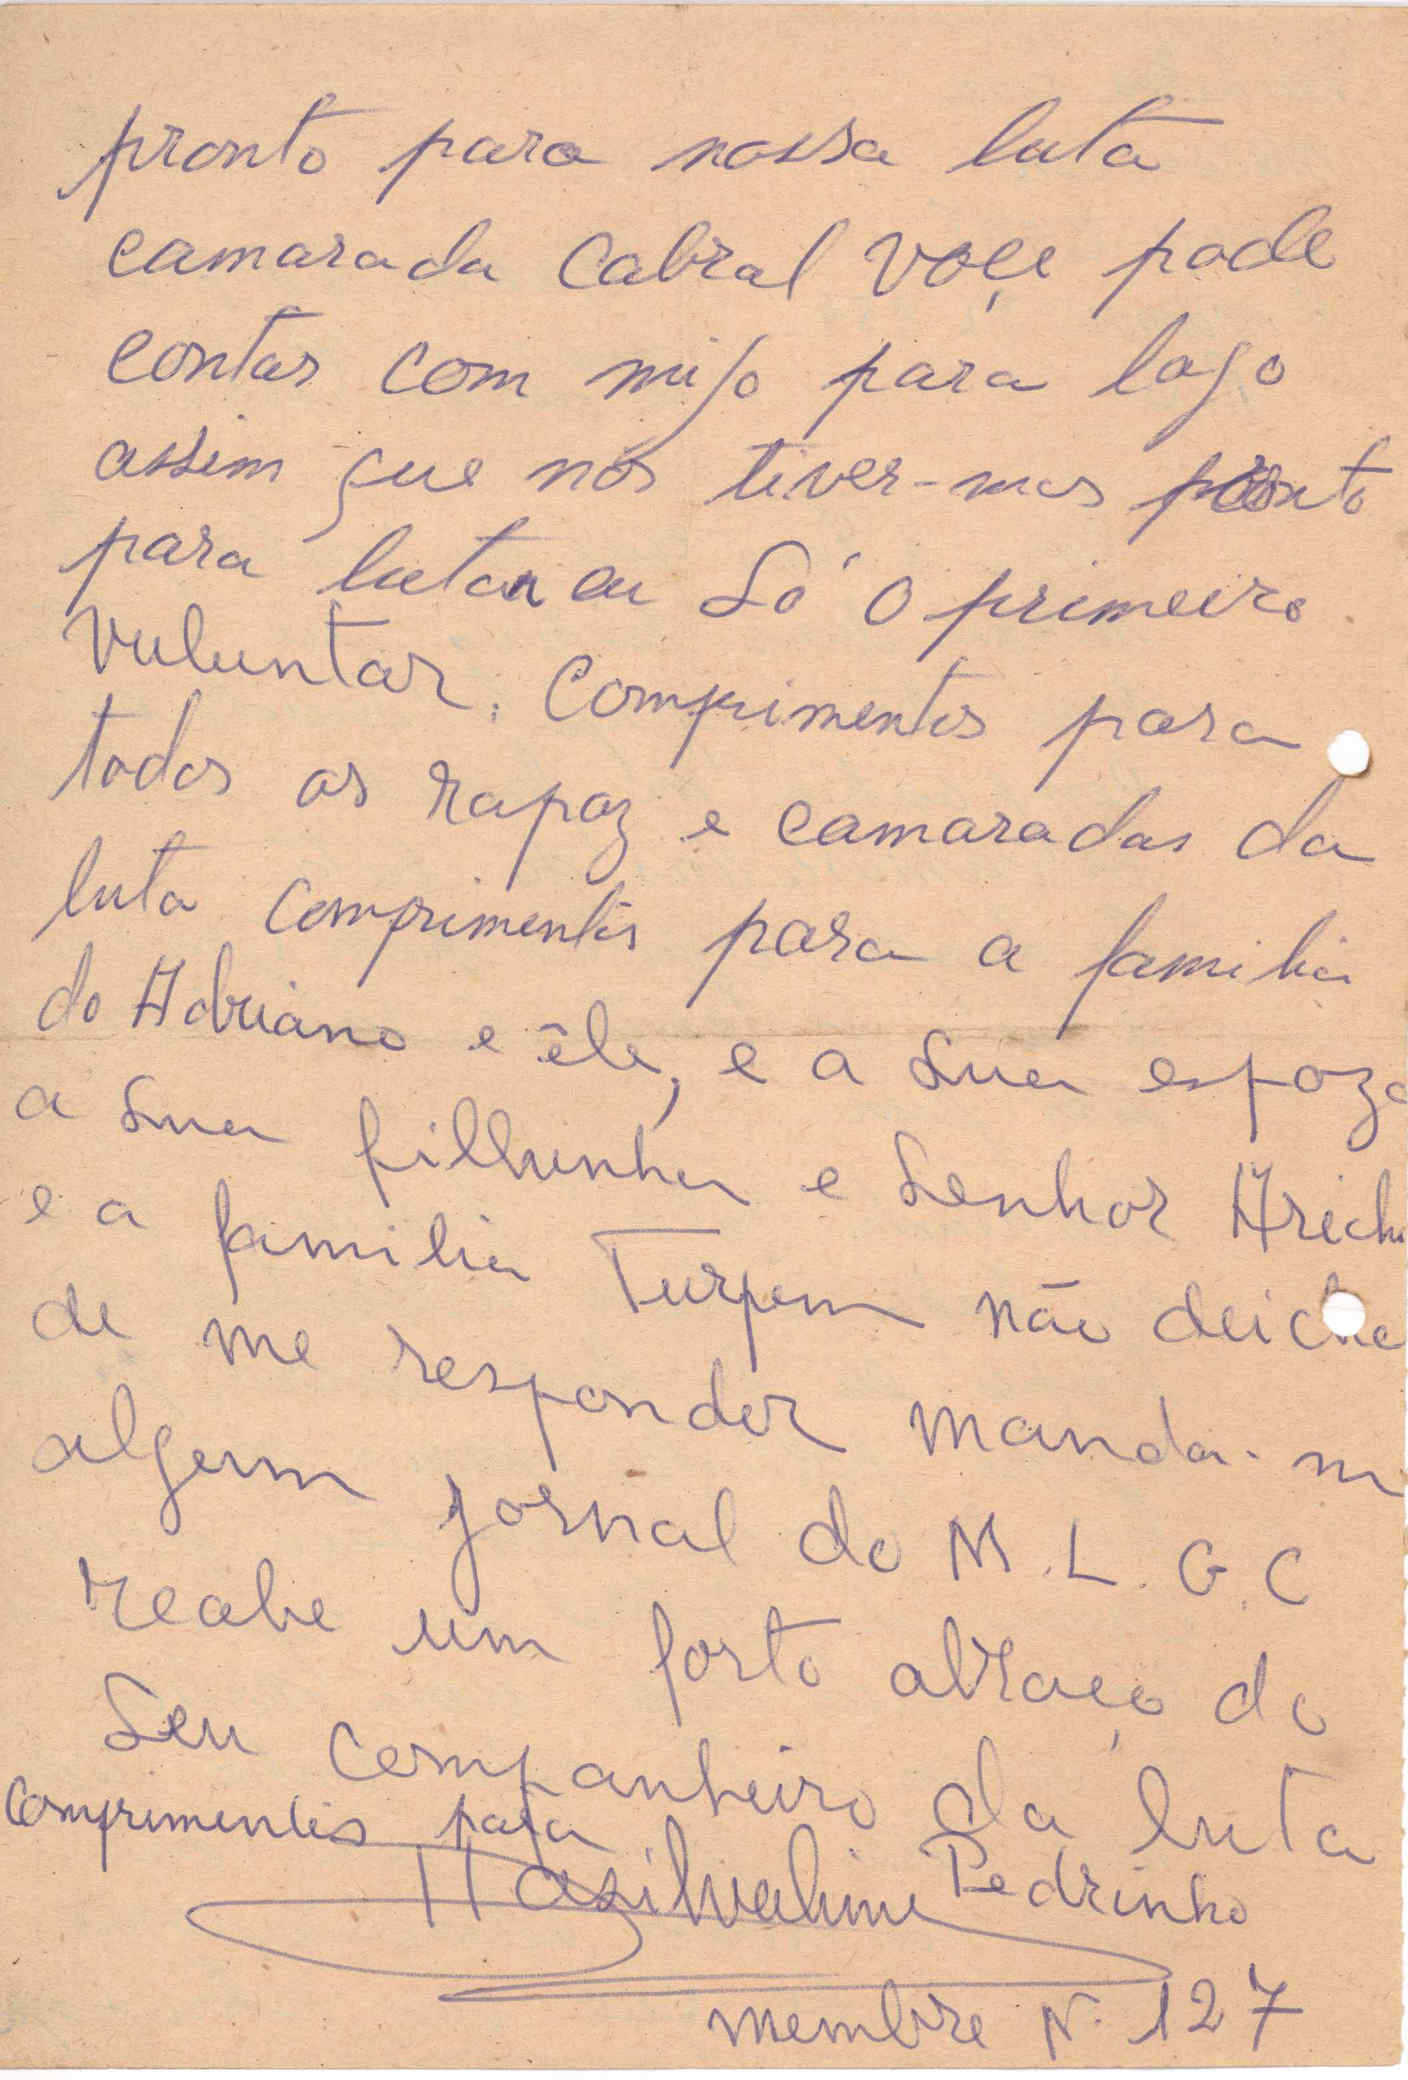 pronto para nossa luta
camarada Cabral voçe pode
contar com migo para logo
assim que nós tiver-mos pronto
para lutar eu Só o primeiro
vuluntar. Comprimentos para
todos os rapaz e camaradas da
luta comprimentos para a familia
do Adriano e êle, e a Sua espoza
a Sua filhinha e Senhor
e a familia Turpem não deiche
de me responder manda-m
algum jornal do M.L.G.C
recabe um forto abraço do
Seu companheiro da luta
Comprimentos para Pedrinho
membre N. 127